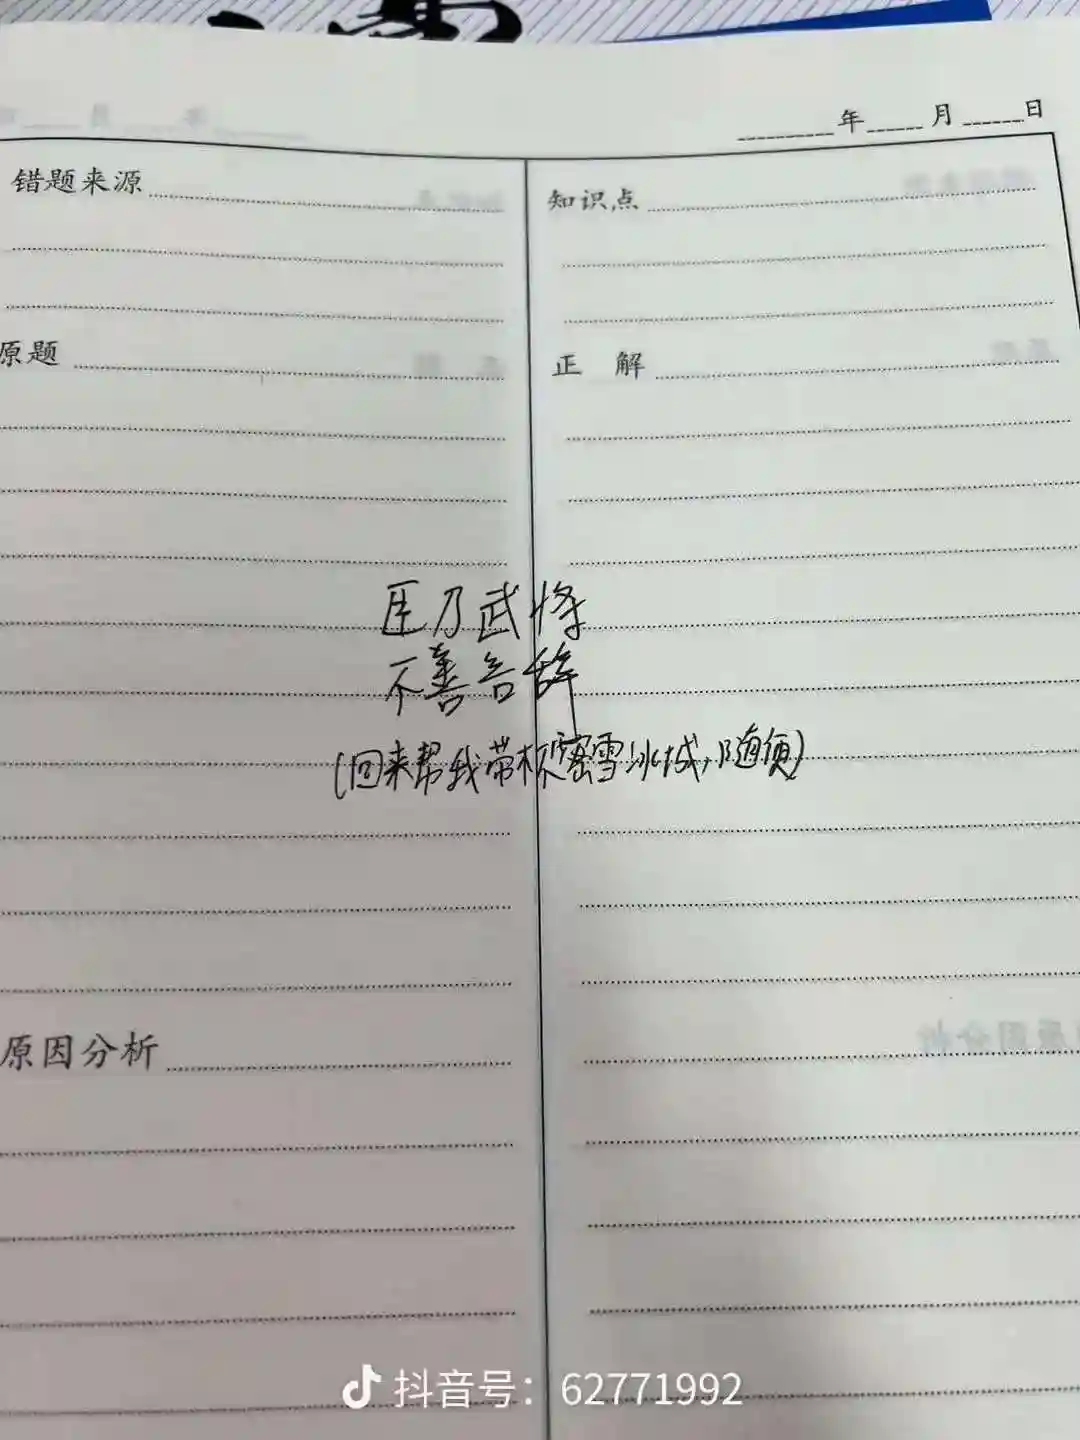 年 月 日
错题来源
知识点
原题
正 解
臣乃武将
不善言辞
(回来帮我带杯蜜雪冰城,随便)
原因分析
抖音号：62771992